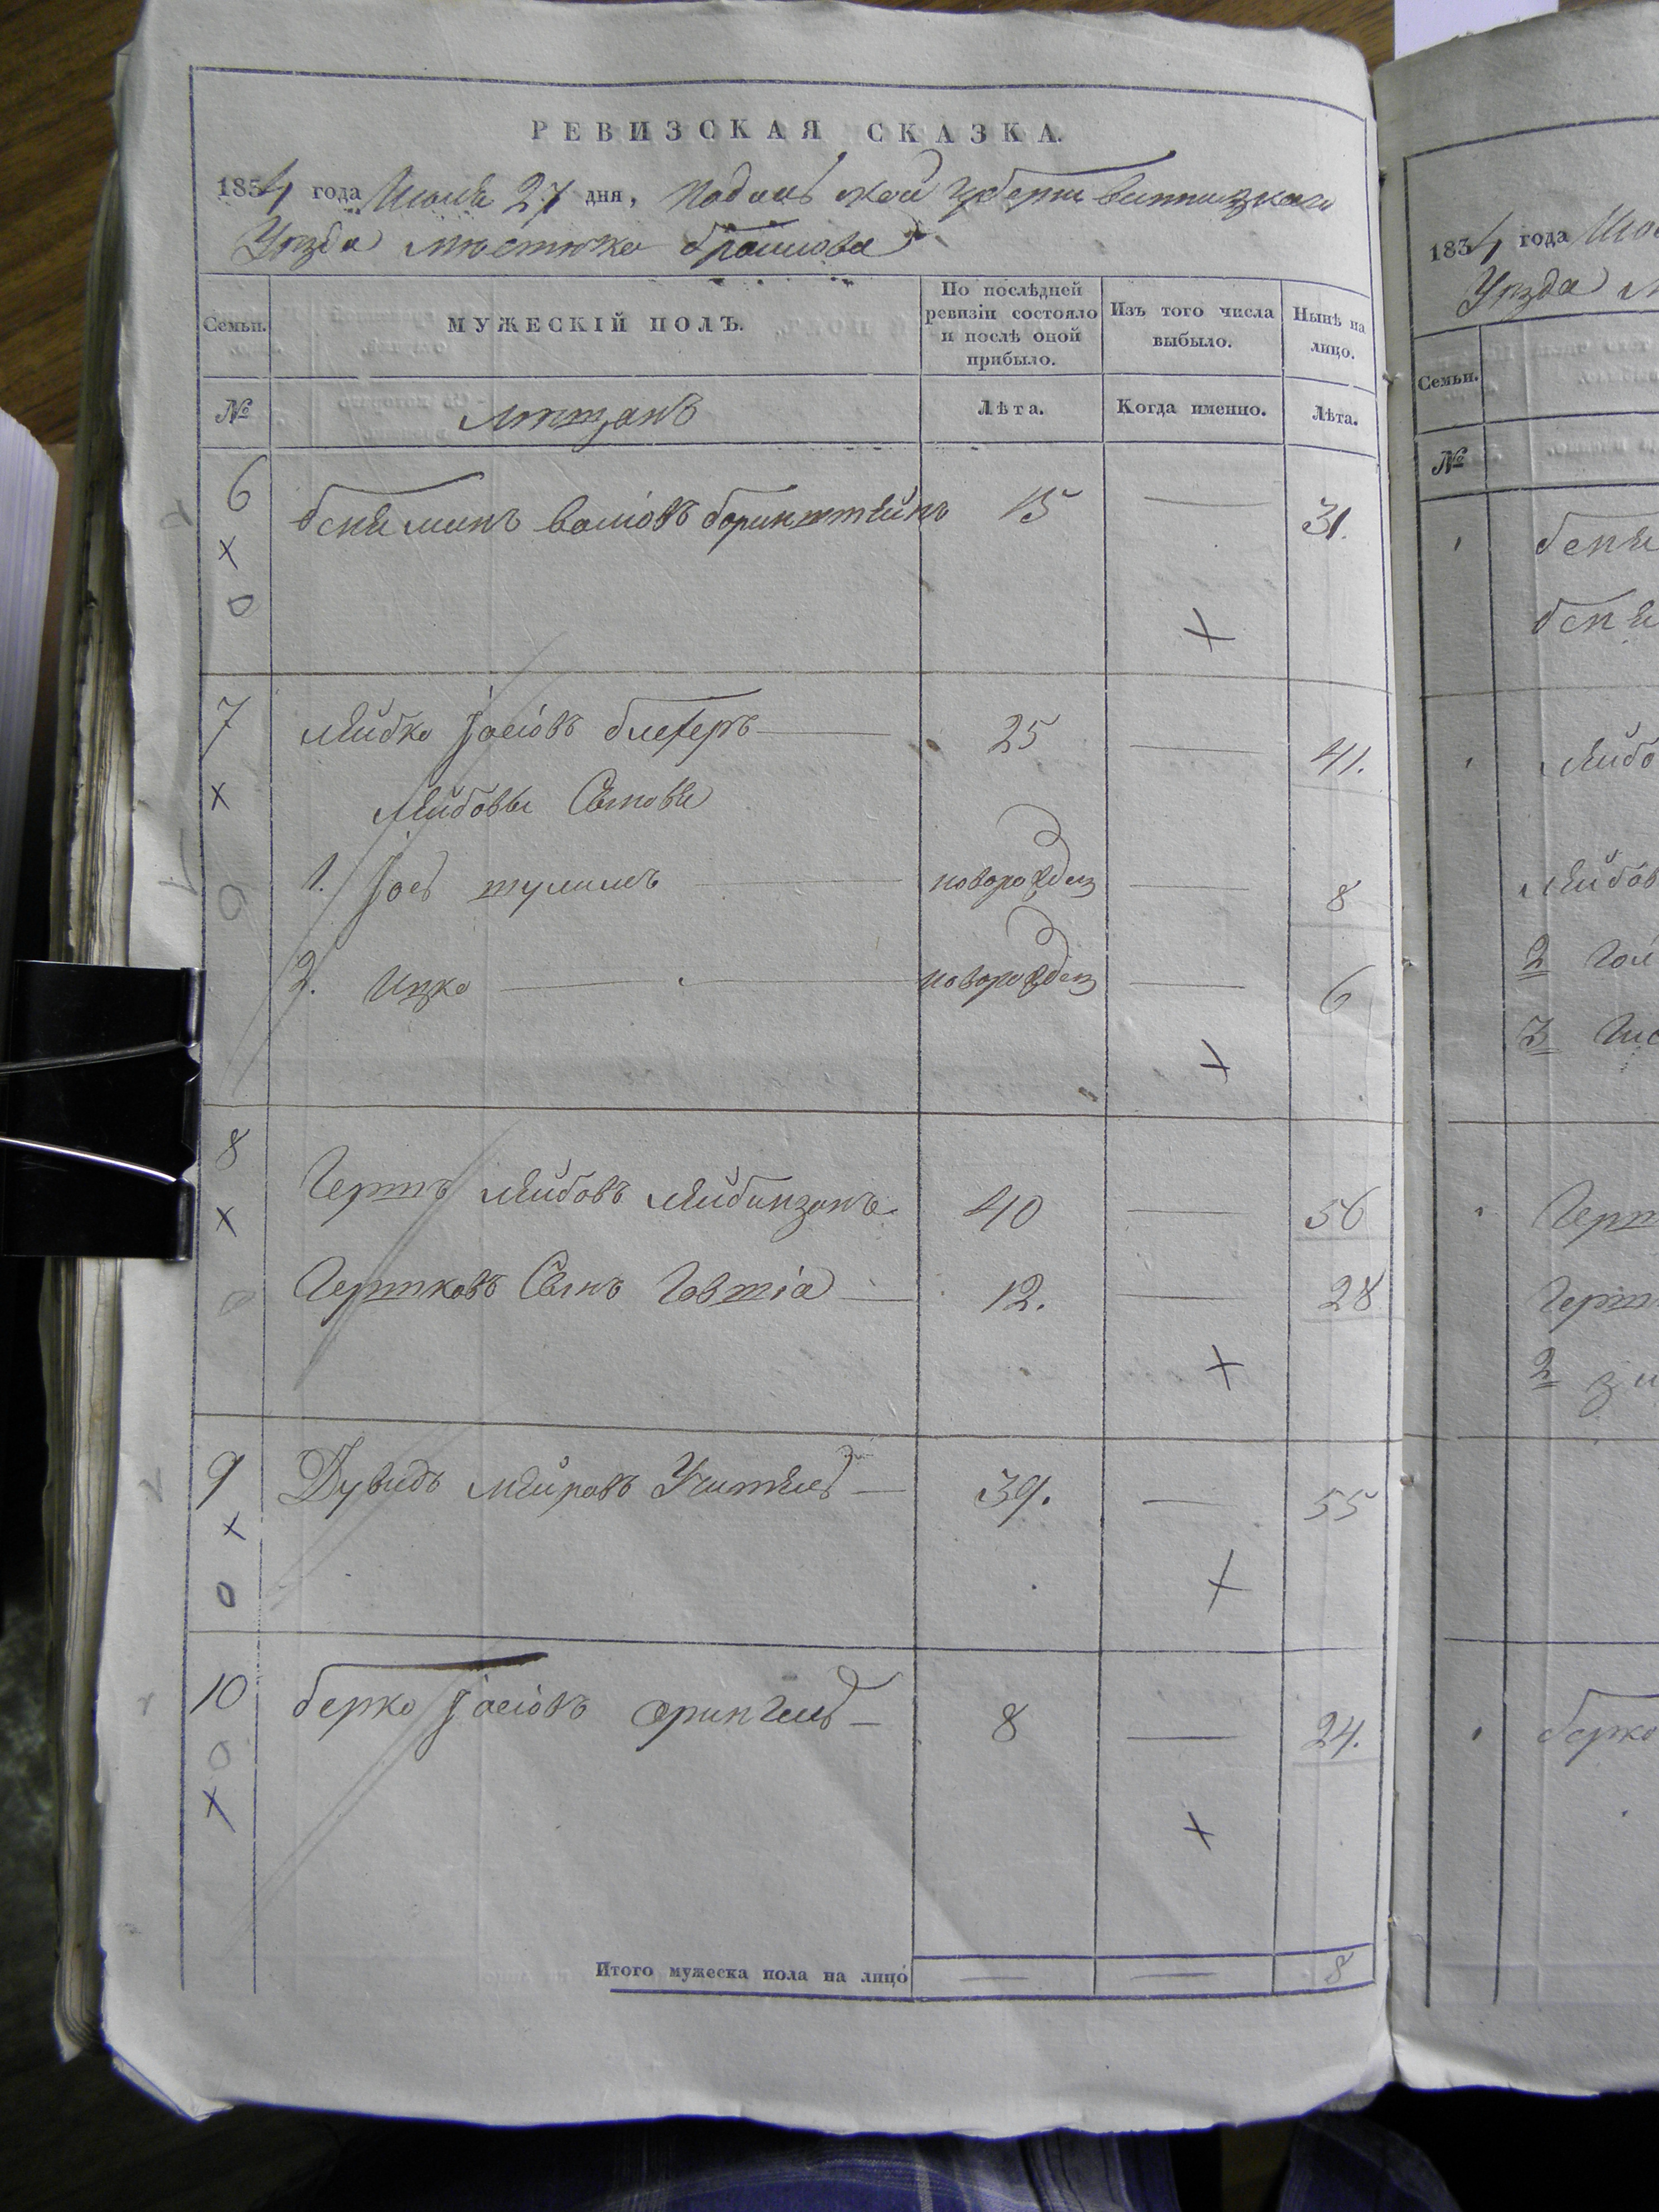 РЕВИЗСКАЯ СКАЗКА.
1854 года Июня 27 дня, Подольской Губерніи Винницкаго
Уѣзда мѣстечка Браилова
Семьи.
МУЖЕСКІЙ ПОЛЪ.
По послѣдней ревизіи состояло и послѣ оной прибыло.
Изъ того числа выбыло.
Нынѣ на лицо.
№
мѣщанъ
Лѣта.
Когда именно.
Лѣта.
6 Беняминъ Волiовъ Боринштейнъ 15 — 31.
7 Лейбко Іосіовъ Блехеръ — 25 — 41.
Лейбовы Сыновья
1. Іось шулимъ — новорожден — 8
2. Ицко — новорожден — 6
8 Гершъ Лейбовъ Лейбинзонъ. 40 — 56
Гершковъ Сынъ Говшіа — 12. — 28
9 Дувидъ Мейровъ Учитель — 39. — 55
10 Берко Іосіовъ — 8 — 24.
Итого мужеска пола на лицо — — 8
1834 года
Уѣзда
Семьи.
№
2
3
2
Берко